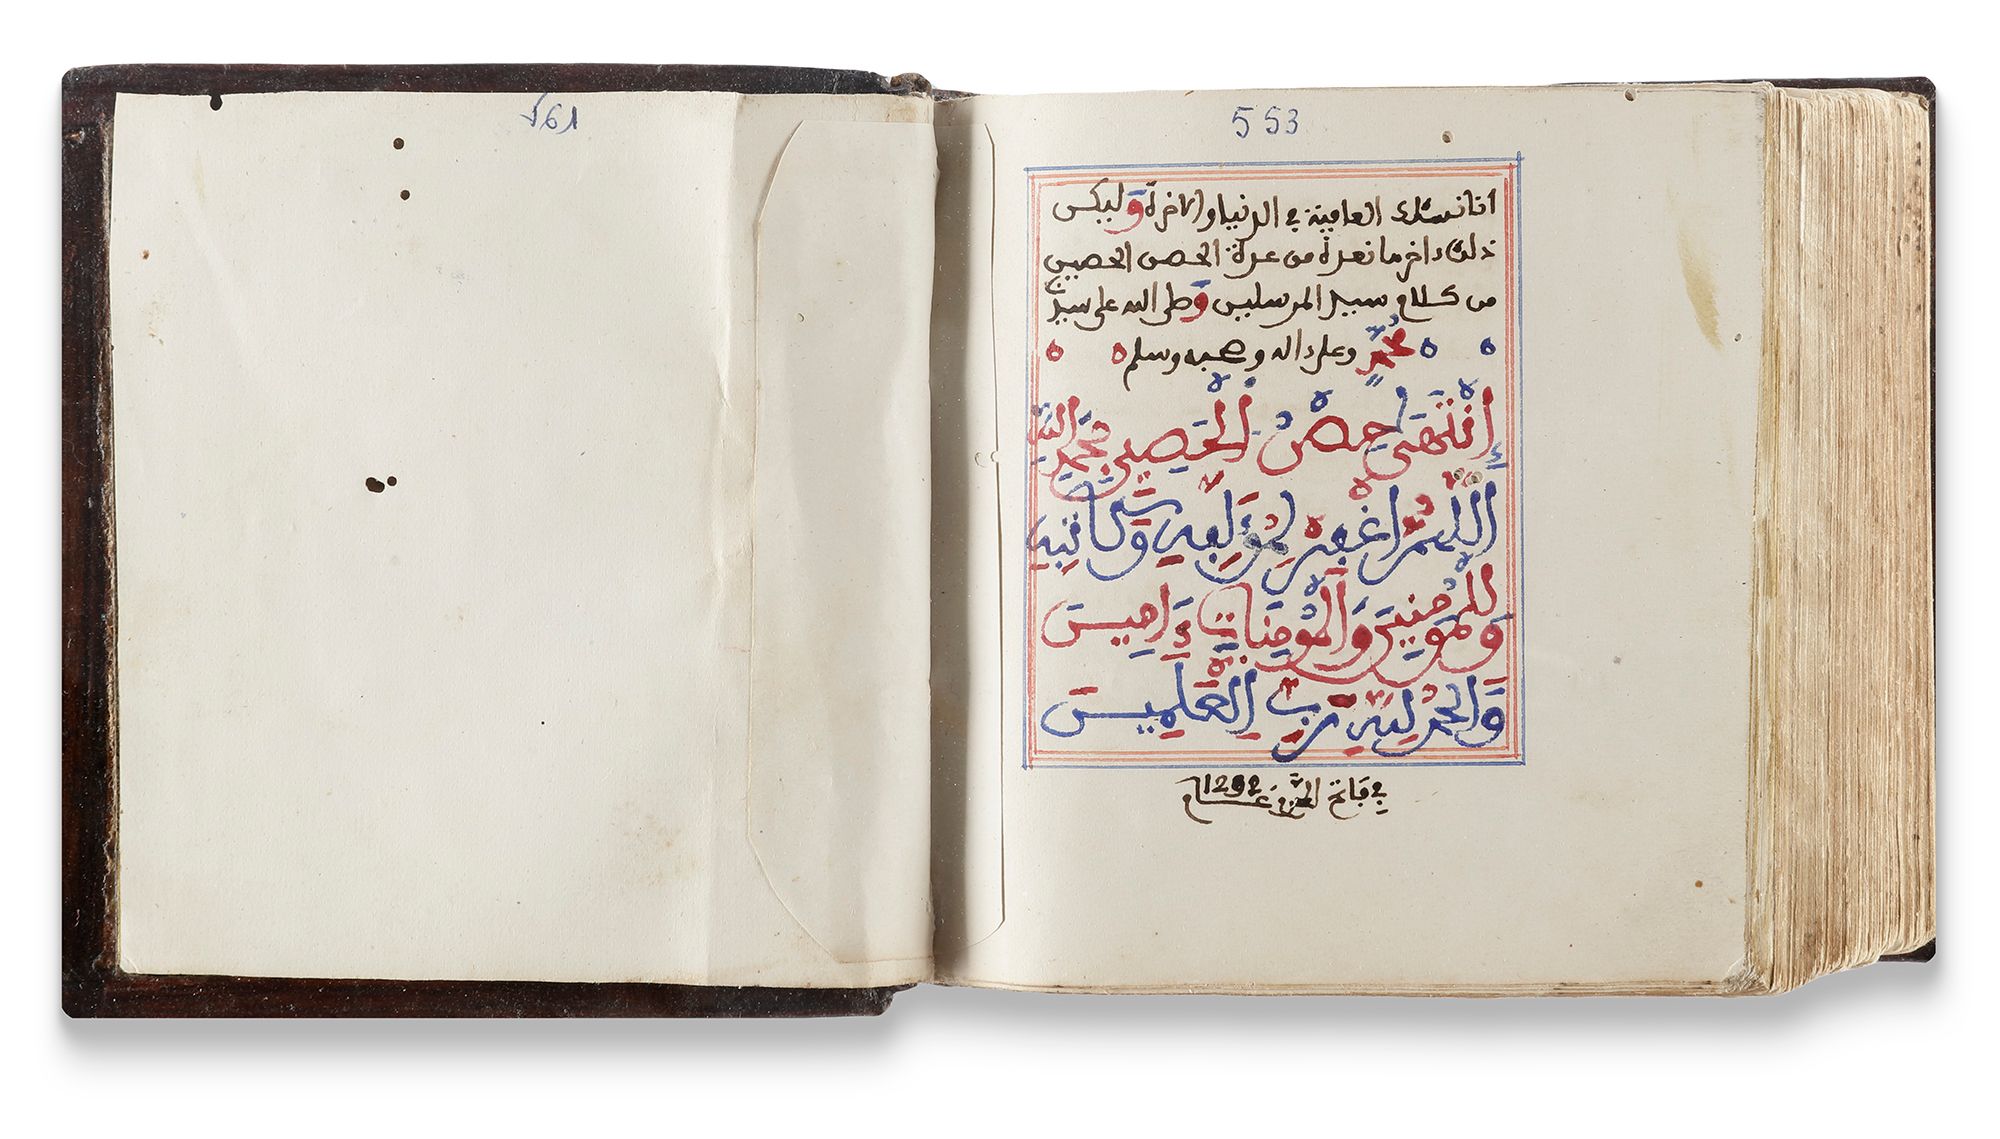 553
انا نسئلك العافية في الدنيا والاخرة وليكن
ذلك ءاخر ما نعده من عدة الحصن الحصين
من كلام سيد المرسلين وصلى الله على سيدنا
محمد وعلى ءاله وصحبه وسلم
إِنْتَهَى حِصْنُ الْحَصِينِ بِحَمْدِ اللَّهِ
اللَّهُمَّ اغْفِرْ لِمُؤَلِّفِهِ وَكَاتِبِهِ
وَلِلْمُؤْمِنِينَ وَالْمُؤْمِنَاتِ ءَامِينَ
وَالْحَمْدُ لِلَّهِ رَبِّ الْعَلَمِينَ
في فاتح المحرم عام 1292